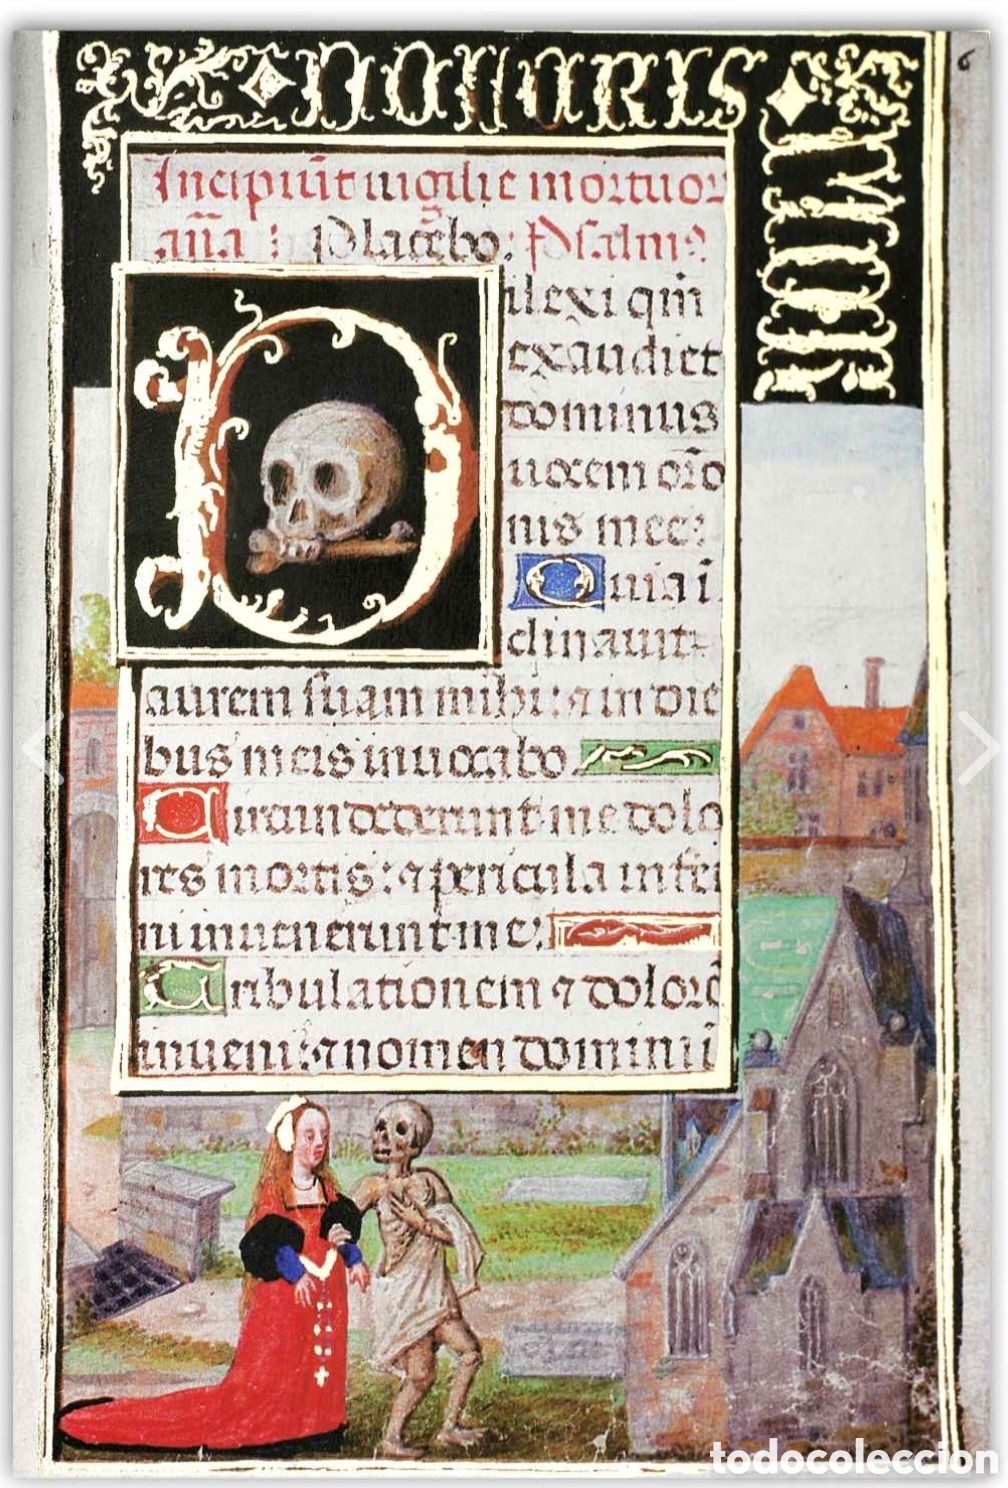 DOLORIS
MORT
Incipiu͞t uigilie mortuor
an͞a : Placebo: Psalm9
Dilexi qm͞
exaudiet
dominus
uocem or͞o
nis mee:
Quia i͞
clinauit
aurem suam mihi: ⁊ in die
bus meis inuocabo
Circu͞dederunt me dolo
res mortis: ⁊ pericula infer
ni inuenerunt me:
Tribulationem ⁊ dolore͞
inueni: ⁊ nomen domini
6
todocoleccion